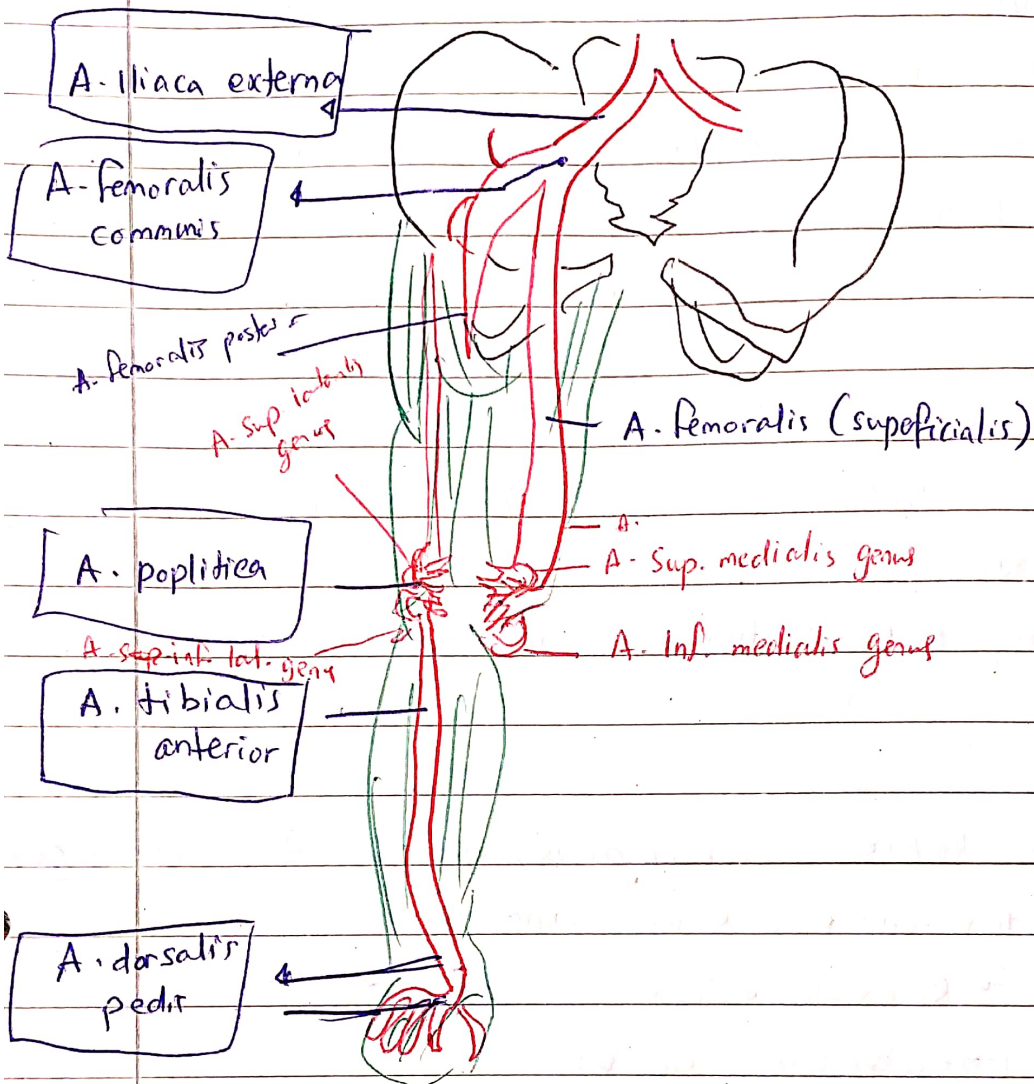 A. Iliaca externa
A-femoralis
communis
A. femoralis poster
A. Sup lateralis
genus
A. femoralis (supeficialis)
A.
A. poplitica
A- Sup. medialis genus
A. Inf. medialis genus
A. inf. lat. genus
A. tibialis
anterior
A. dorsalis
pedis